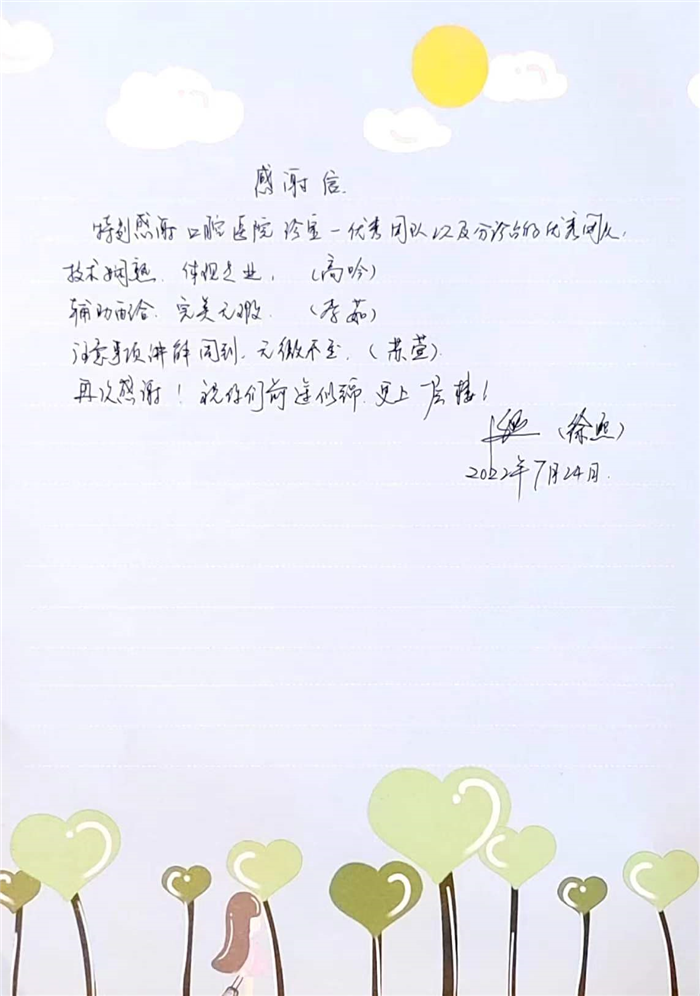 感谢信
特别感谢口腔医院诊室一优秀团队以及分诊台的优秀团队,
技术娴熟、体现专业,(高吟)
辅助配合、完美无瑕、(李茹)
注意事项讲解周到、无微不至、(苏萱)
再次感谢!祝你们前途似锦、更上一层楼!
(徐照)
2022年7月24日.